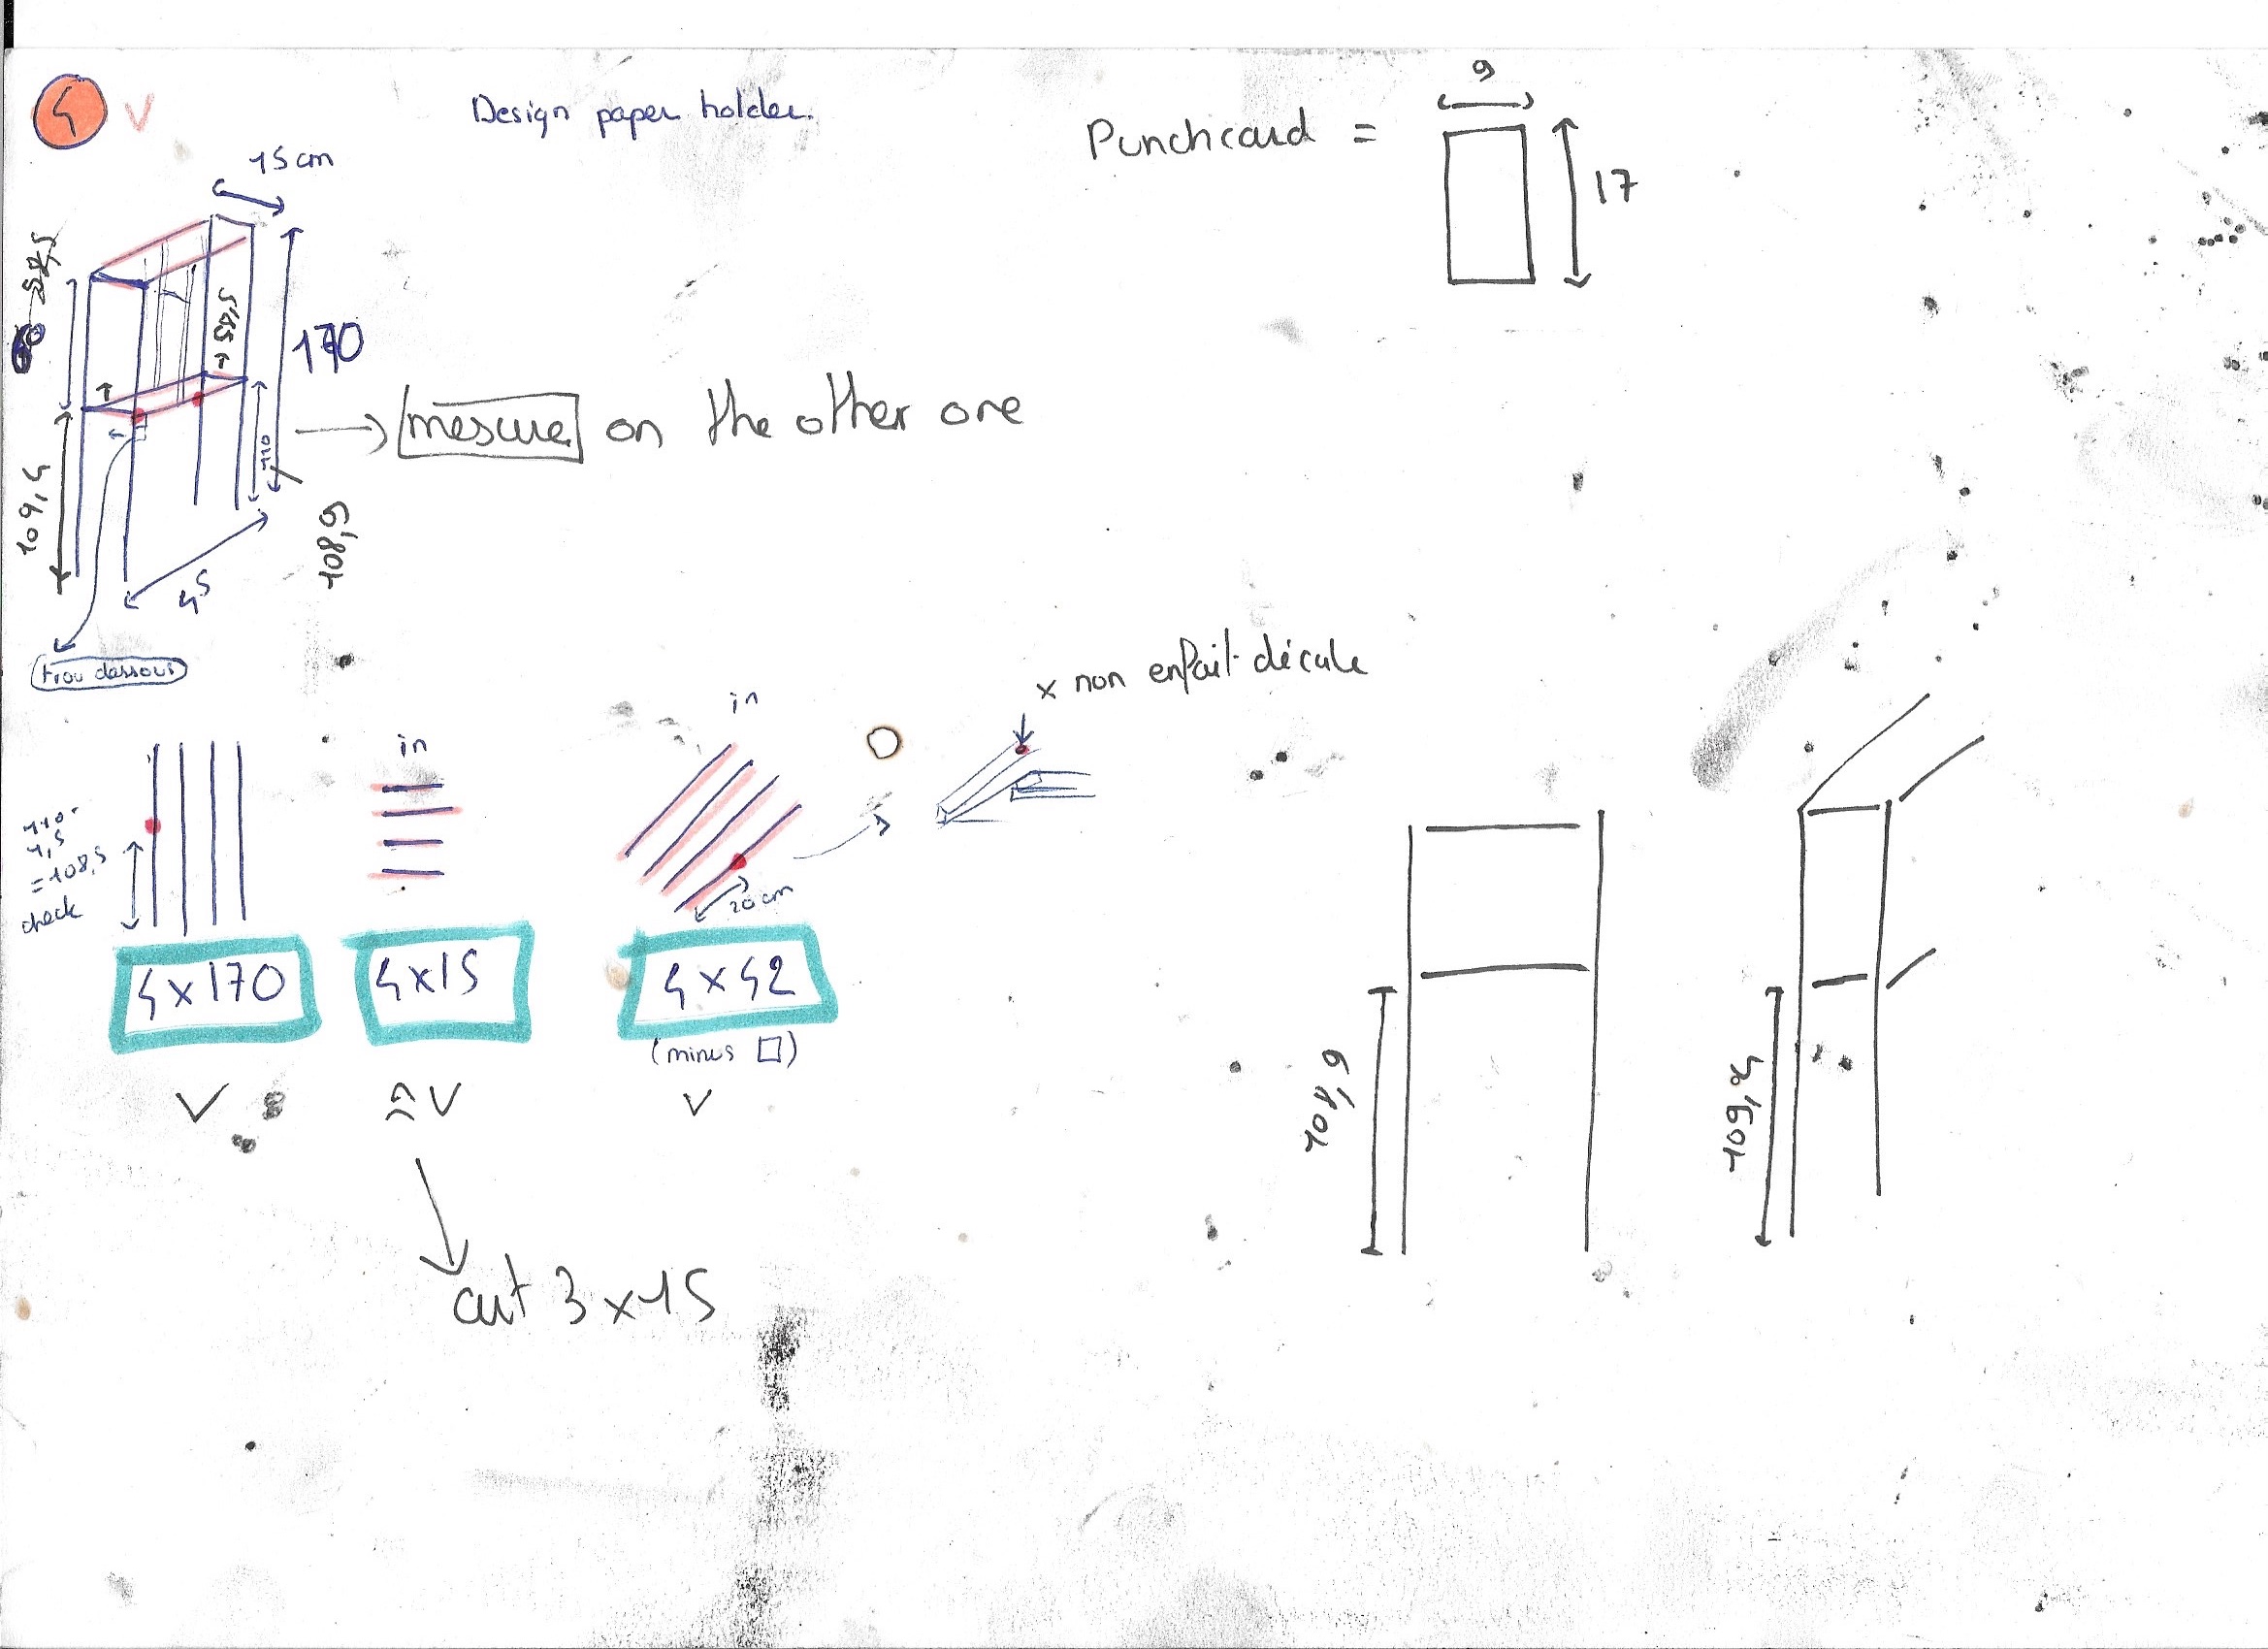 4 V
Design paper holder.
Punchcard =
9
17
15 cm
170
110
109,4
108,9
45
→ mesure on the other one
trou dessous
x non enfait décale
in
in
110-
1,5
= 108,5
check
20 cm
4 x 170
4 x 15
4 x 42
(minus □)
V
≈ V
V
cut 3 x 15
108,9
109,4